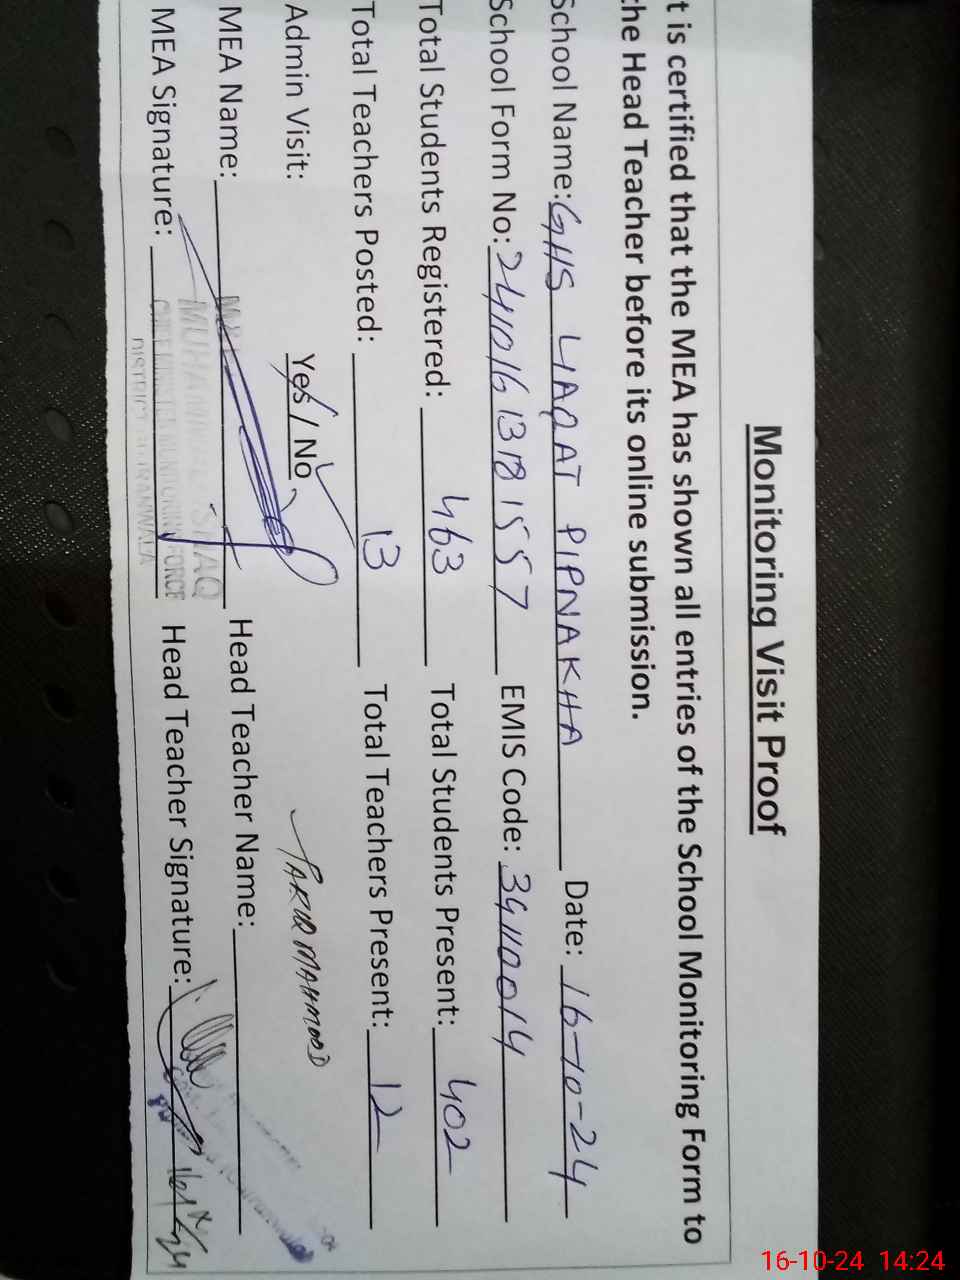 Monitoring Visit Proof
t is certified that the MEA has shown all entries of the School Monitoring Form to
the Head Teacher before its online submission.
School Name: GHS LIAQAT PIPNAKHA Date: 16-10-24
School Form No: 24101613181557 EMIS Code: 34110014
Total Students Registered: 463 Total Students Present: 402
Total Teachers Posted: 13 Total Teachers Present: 12
Admin Visit: Yes / No TARIQ MAHMOOD
MEA Name: Head Teacher Name:
MEA Signature: Head Teacher Signature:
16-10-24 14:24